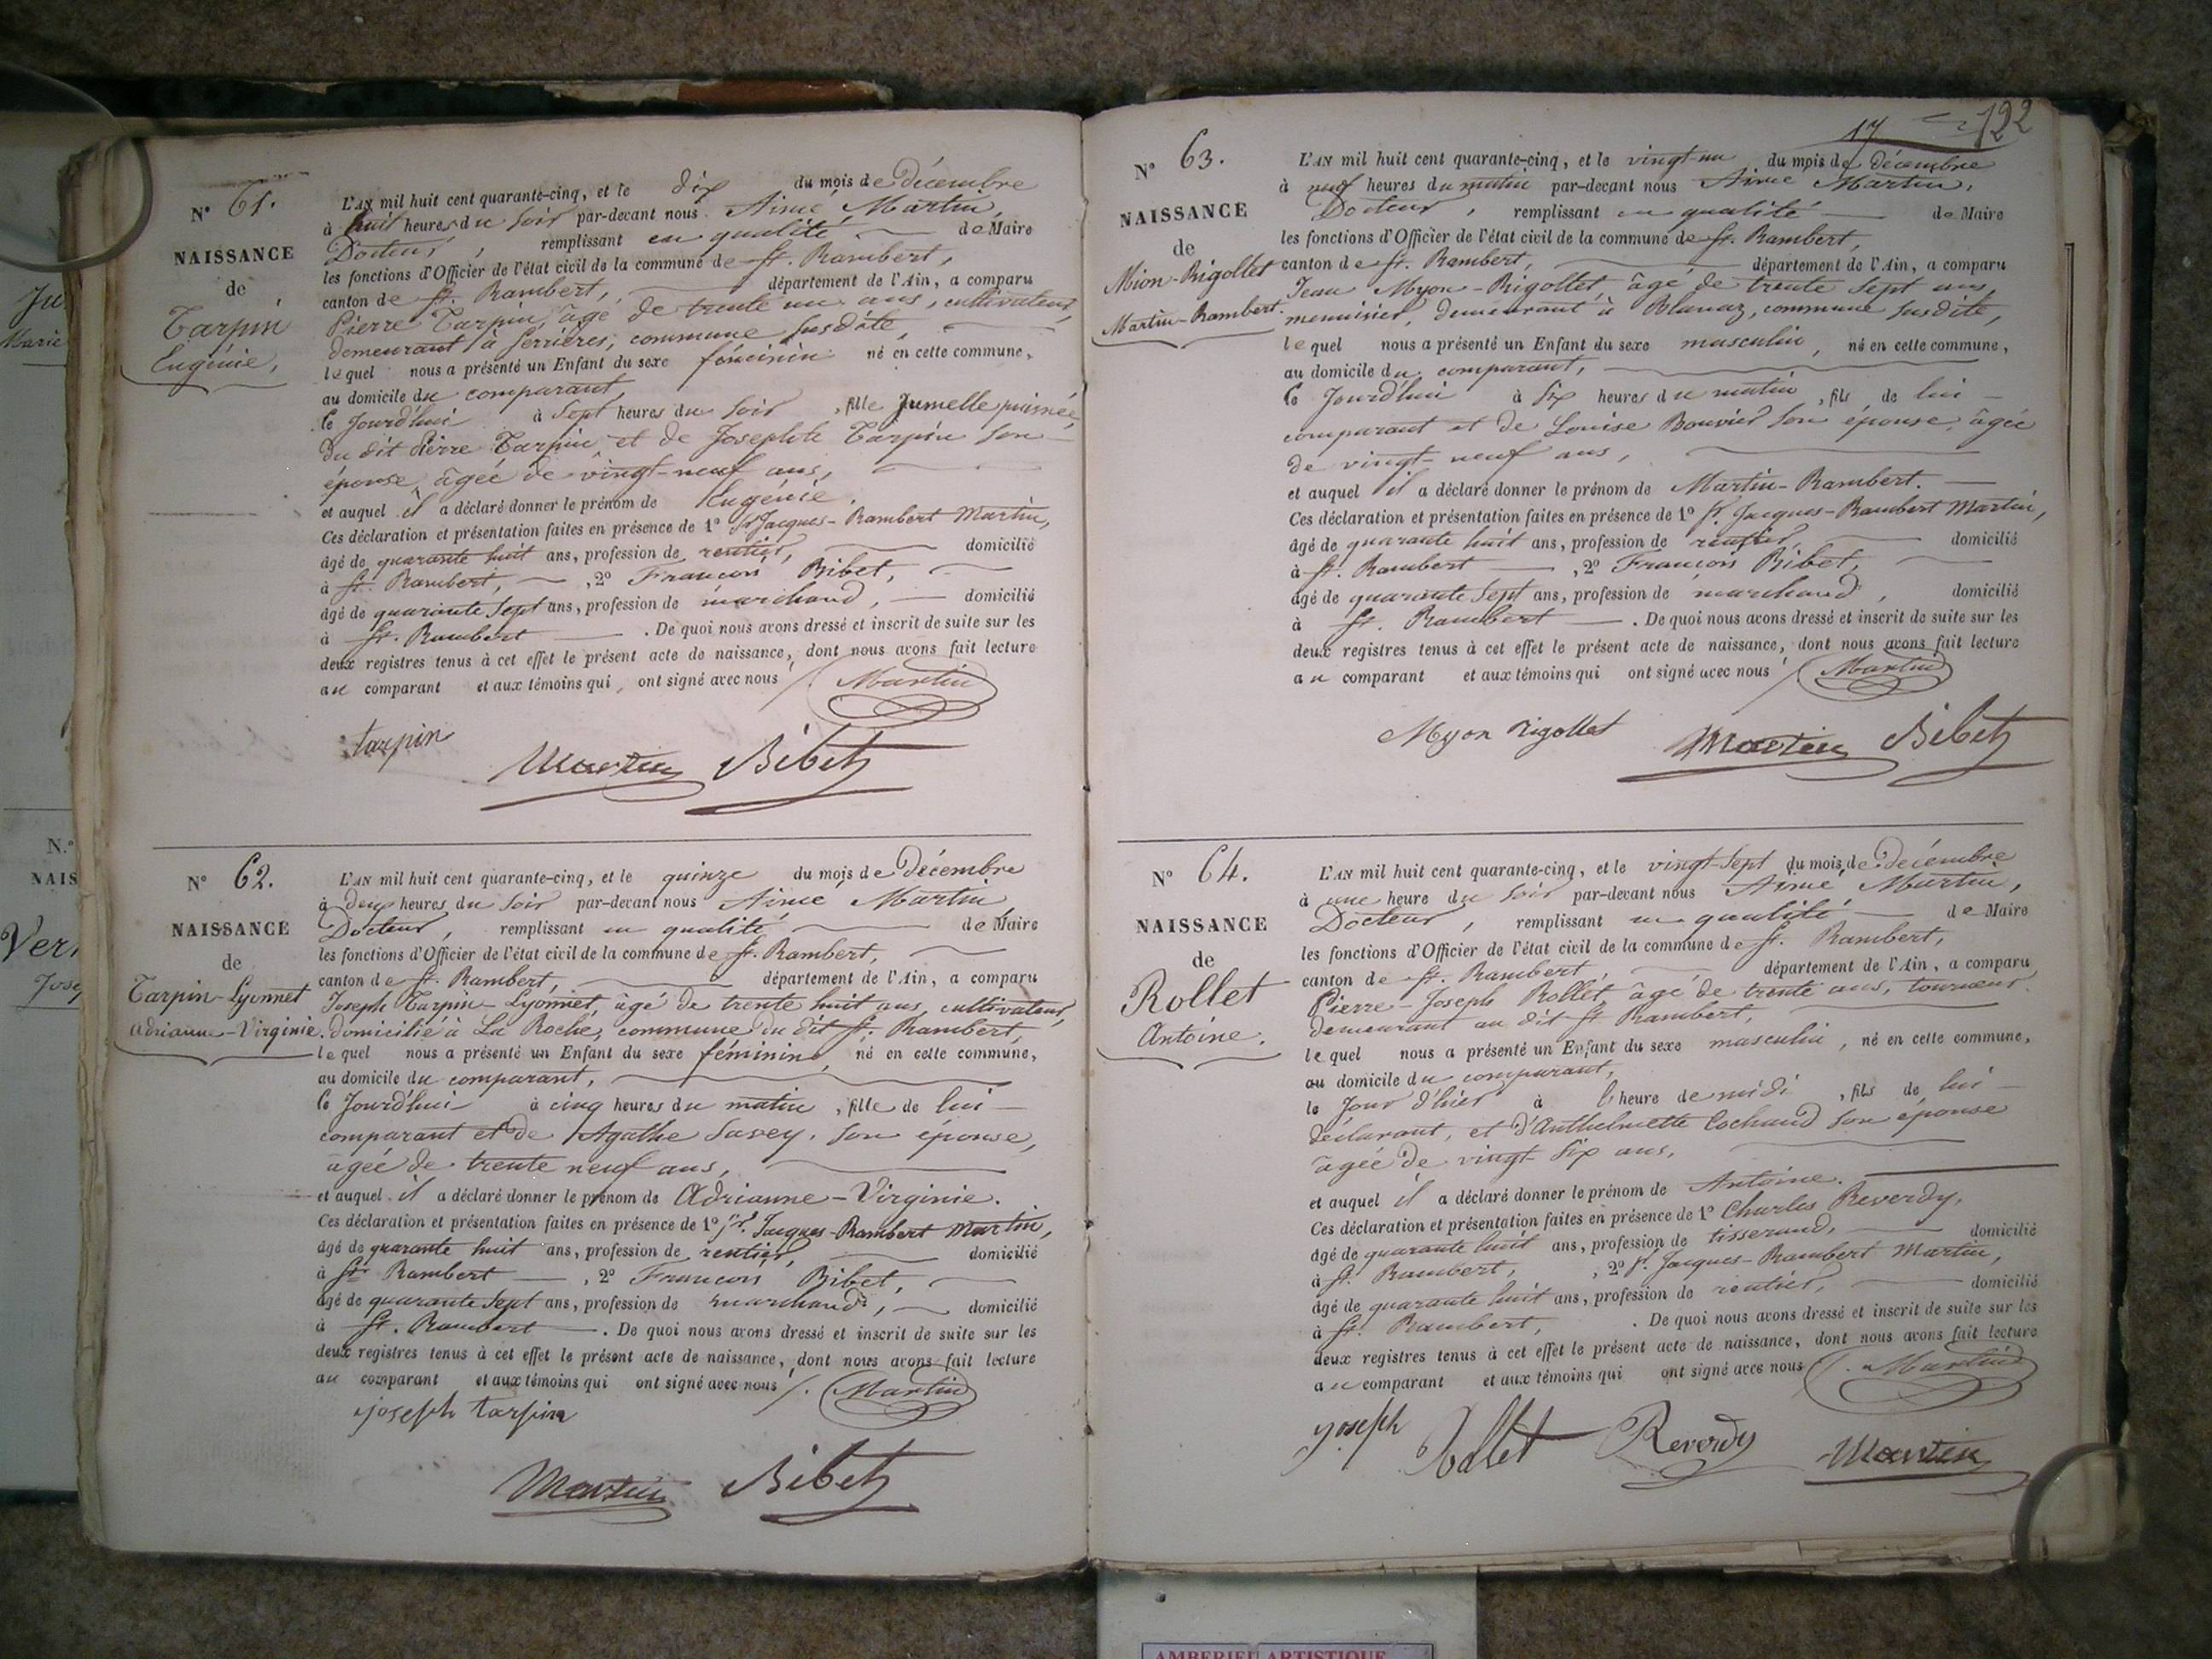 Ju
Marie
N.º
NAIS
Ver
Jose
Nº 61.
NAISSANCE
de
Tarpin
Eugénie,
L'AN mil huit cent quarante-cinq, et le dix du mois de décembre
à huit heures du soir par-devant nous Aimé Martin,
Docteur, remplissant en qualité de Maire
les fonctions d'Officier de l'état civil de la commune de St. Rambert,
canton de St. Rambert, département de l'Ain, a comparu
Pierre Tarpin, âgé de trente un ans, cultivateur,
demeurant à Serrières, commune susdite,
lequel nous a présenté un Enfant du sexe féminin né en cette commune,
au domicile du comparant,
ce Jourd'hui à sept heures du soir, fille Jumelle puisnée
du dit Pierre Tarpin et de Josephte Tarpin son
épouse, âgée de vingt-neuf ans,
et auquel il a déclaré donner le prénom de Eugénie.
Ces déclaration et présentation faites en présence de 1º Sr. Jacques-Rambert Martin,
âgé de quarante huit ans, profession de rentier, domicilié
à St. Rambert, , 2º François Bibet,
âgé de quarante sept ans, profession de marchand, domicilié
à St. Rambert . De quoi nous avons dressé et inscrit de suite sur les
deux registres tenus à cet effet le présent acte de naissance, dont nous avons fait lecture
au comparant et aux témoins qui ont signé avec nous /. Martin
tarpin
Martin Bibet
Nº 62.
NAISSANCE
de
Tarpin-Lyonnet
Adrianne-Virginie.
L'AN mil huit cent quarante-cinq, et le quinze du mois de Décembre
à deux heures du soir par-devant nous Aimé Martin
Docteur, remplissant en qualité de Maire
les fonctions d'Officier de l'état civil de la commune de St. Rambert,
canton de St. Rambert, département de l'Ain, a comparu
Joseph Tarpin-Lyonnet, âgé de trente huit ans, cultivateur,
domicilié à La Roche, commune du dit St. Rambert,
lequel nous a présenté un Enfant du sexe féminin, né en cette commune,
au domicile du comparant,
ce Jourd'hui à cinq heures du matin, fille de lui
comparant et de Agathe Savey, son épouse,
âgée de trente neuf ans,
et auquel il a déclaré donner le prénom de Adrianne-Virginie.
Ces déclaration et présentation faites en présence de 1º Sr. Jacques-Rambert Martin,
âgé de quarante huit ans, profession de rentier, domicilié
à St. Rambert , 2º François Bibet,
âgé de quarante sept ans, profession de marchand, domicilié
à St. Rambert . De quoi nous avons dressé et inscrit de suite sur les
deux registres tenus à cet effet le présent acte de naissance, dont nous avons fait lecture
au comparant et aux témoins qui ont signé avec nous /. Martin
joseph tarpin
Martin Bibet
17 122
Nº 63.
NAISSANCE
de
Mion-Rigollet
Martin-Rambert.
L'AN mil huit cent quarante-cinq, et le vingt-un du mois de décembre
à neuf heures du matin par-devant nous Aimé Martin,
Docteur, remplissant en qualité de Maire
les fonctions d'Officier de l'état civil de la commune de St. Rambert,
canton de St. Rambert, département de l'Ain, a comparu
Jean Myon-Rigollet, âgé de trente sept ans,
menuisier, demeurant à Blanaz, commune susdite,
lequel nous a présenté un Enfant du sexe masculin, né en cette commune,
au domicile du comparant,
ce Jourd'hui à six heures du matin, fils de lui
comparant et de Louise Bouvier son épouse, âgée
de vingt-neuf ans,
et auquel il a déclaré donner le prénom de Martin-Rambert.
Ces déclaration et présentation faites en présence de 1º Sr. Jacques-Rambert Martin,
âgé de quarante huit ans, profession de rentier, domicilié
à St. Rambert , 2º François Bibet,
âgé de quarante sept ans, profession de marchand, domicilié
à St. Rambert . De quoi nous avons dressé et inscrit de suite sur les
deux registres tenus à cet effet le présent acte de naissance, dont nous avons fait lecture
au comparant et aux témoins qui ont signé avec nous / Martin
Myon Rigollet Martin Bibet
Nº 64.
NAISSANCE
de
Rollet
Antoine.
L'AN mil huit cent quarante-cinq, et le vingt-sept du mois de Décembre
à une heure du soir par-devant nous Aimé Martin,
Docteur, remplissant en qualité de Maire
les fonctions d'Officier de l'état civil de la commune de St. Rambert,
canton de St. Rambert, département de l'Ain, a comparu
Pierre-Joseph Rollet, âgé de trente ans, tourneur
demeurant au dit St Rambert,
lequel nous a présenté un Enfant du sexe masculin, né en cette commune,
au domicile du comparant,
le Jour d'hier à l'heure de midi, fils de lui
déclarant, et d'Anthelmette Cochand son épouse
âgée de vingt-six ans.
et auquel il a déclaré donner le prénom de Antoine.
Ces déclaration et présentation faites en présence de 1º Charles Reverdy,
âgé de quarante huit ans, profession de tisserand, domicilié
à St. Rambert, , 2º Sr. Jacques-Rambert Martin,
âgé de quarante huit ans, profession de rentier, domicilié
à St. Rambert, . De quoi nous avons dressé et inscrit de suite sur les
deux registres tenus à cet effet le présent acte de naissance, dont nous avons fait lecture
au comparant et aux témoins qui ont signé avec nous /. Martin
joseph Rollet Reverdy Martin
AMBERIEU ARTISTIQUE